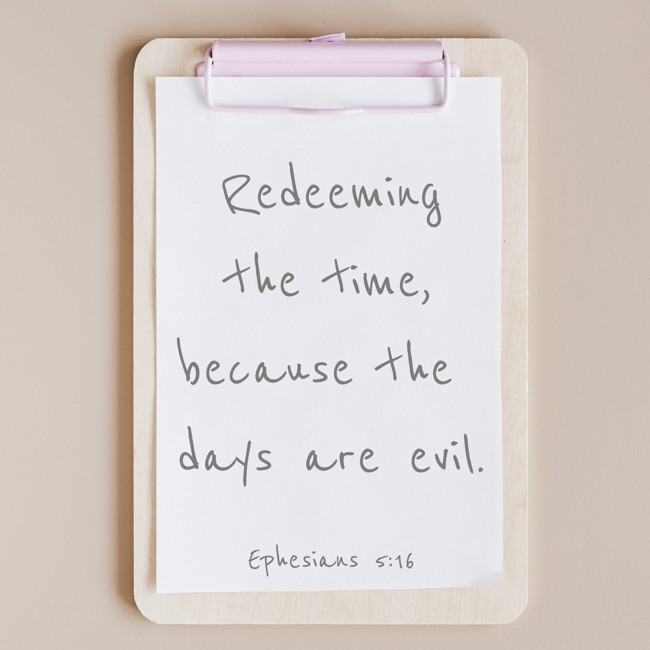 Redeeming
the time,
because the
days are evil.
Ephesians 5:16